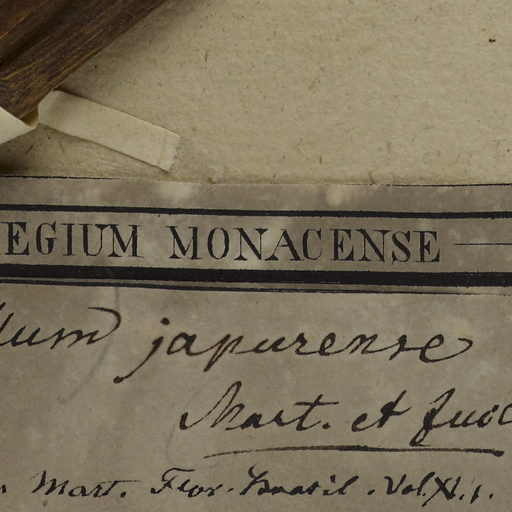 EGIUM MONACENSE
lum japurense
Mart. et Zucc
Mart. Flor. Brasil. Vol. XI. 1.